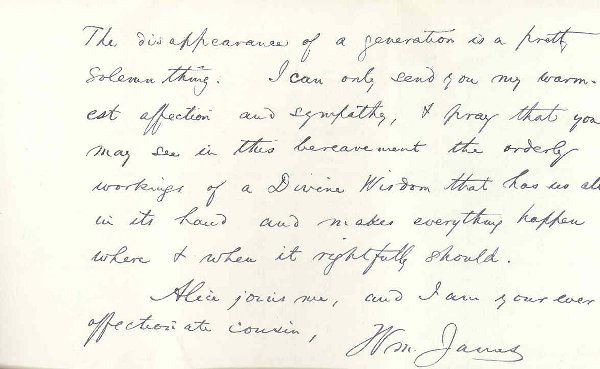 The disappearance of a generation is a pretty
solemn thing. I can only send you my warm-
est affection and sympathy, & pray that you
may see in this bereavement the orderly
workings of a Divine Wisdom that has us all
in its hand and makes everything happen
where & when it rightfully should.
Alice joins me, and I am your ever
affectionate cousin,
Wm. James